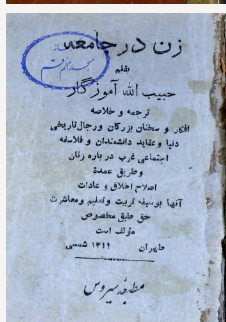 زن در جامعه
بقلم
حبیب الله آموزگار
ترجمه و خلاصه
افکار و سخنان بزرگان و رجال تاریخی
دنیا و عقاید دانشمندان و فلاسفه
اجتماعی غرب در باره زنان
و طریق عمدهٔ
اصلاح اخلاق و عادات
آنها بوسیله تربیت و تعلیم و معاشرت
حق طبع مخصوص
مؤلف است
طهران ۱۳۱۱ شمسی
مطبعه سیروس